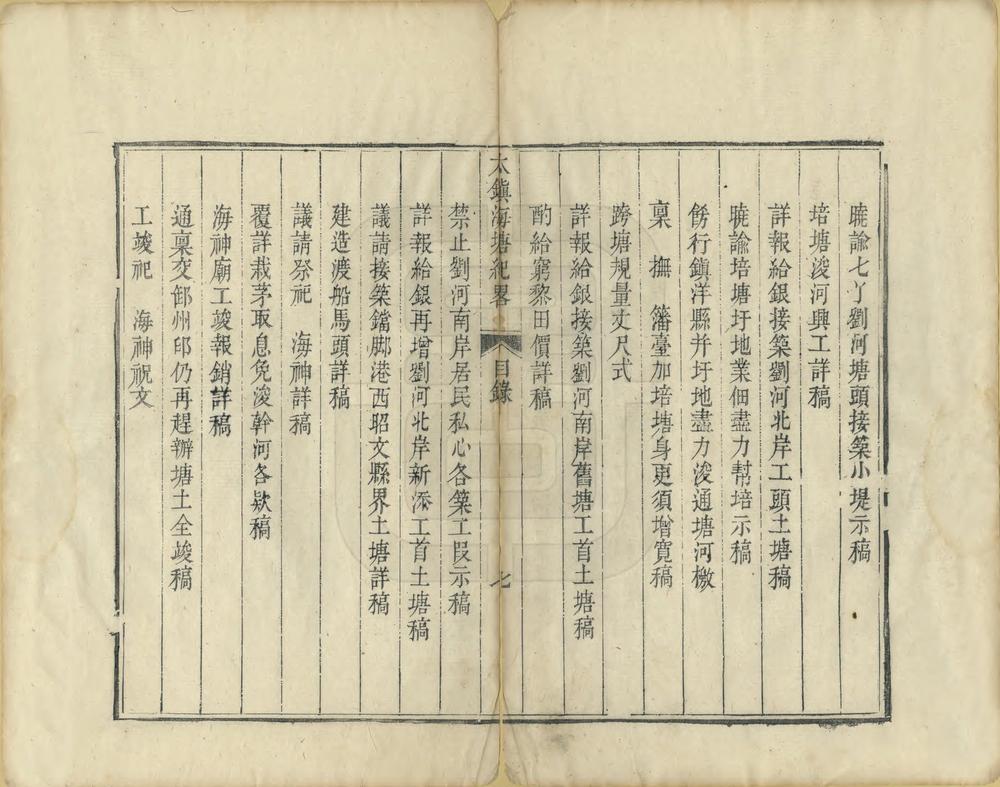 曉諭七丫劉河塘頭接築小堤示稿
培塘浚河興工詳稿
詳報給銀接築劉河北岸工頭土塘稿
曉諭培塘圩地業佃盡力幫培示稿
飭行鎮洋縣幷圩地盡力浚通塘河檄
稟　撫　藩臺加培塘身更須增寬稿
跨塘規量丈尺式
詳報給銀接築劉河南岸舊塘工首土塘稿
酌給窮黎田價詳稿
太鎮海塘紀畧　目錄　七
禁止劉河南岸居民私心各築工段示稿
詳報給銀再增劉河北岸新添工首土塘稿
議請接築鐺脚港西昭文縣界土塘詳稿
建造渡船馬頭詳稿
議請祭祀　海神詳稿
覆詳栽茅取息免浚幹河各欵稿
海神廟工竣報銷詳稿
通稟交卸州印仍再趕辦塘土全竣稿
工竣祀　海神祝文